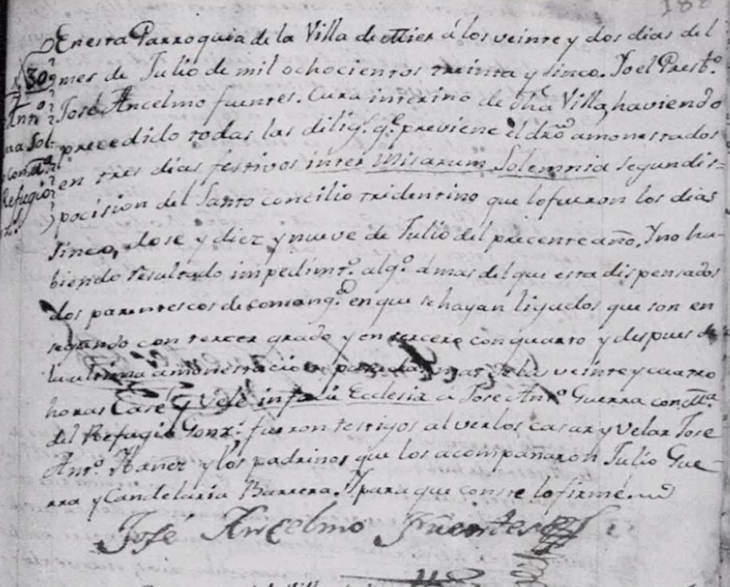 188
En esta Parroquia de la Villa de Mier á los veinte y dos dias del
30 mes de Julio de mil ochocientos treinta y sinco. Yo el Presbo.
José Ancelmo fuentes. Cura interino de dha Villa, haviendo
precedido todas las diligs. qe. previene el dro. amonestados
en tres dias festivos inter Misarum Solemnia segun dis-
pocision del Santo concilio tridentino que lo fueron los dias
sinco, dose y diez y nueve de Julio del precente año, Y no hu-
biendo resultado impedimto. algo. á mas del que esta dispensados
dos parentescos de comangd. en que se hayan ligados que son en
segundo con tercer grado y en tercero con quarto y despues de
la ultima amonestacion veinte y cuatro
horas Casé y Velé in facie Ecclesix a Jose Anto. Guerra con Ma.
del Refugio Gonz. fueron testigos al verlos casar y velar Jose
Anto. Yañez y los padrinos que los acompañaron Julio Gue-
rra y Candelaria Barrera. Y para que conste lo firmé.
José Ancelmo Fuentes
Anto.
Refugio